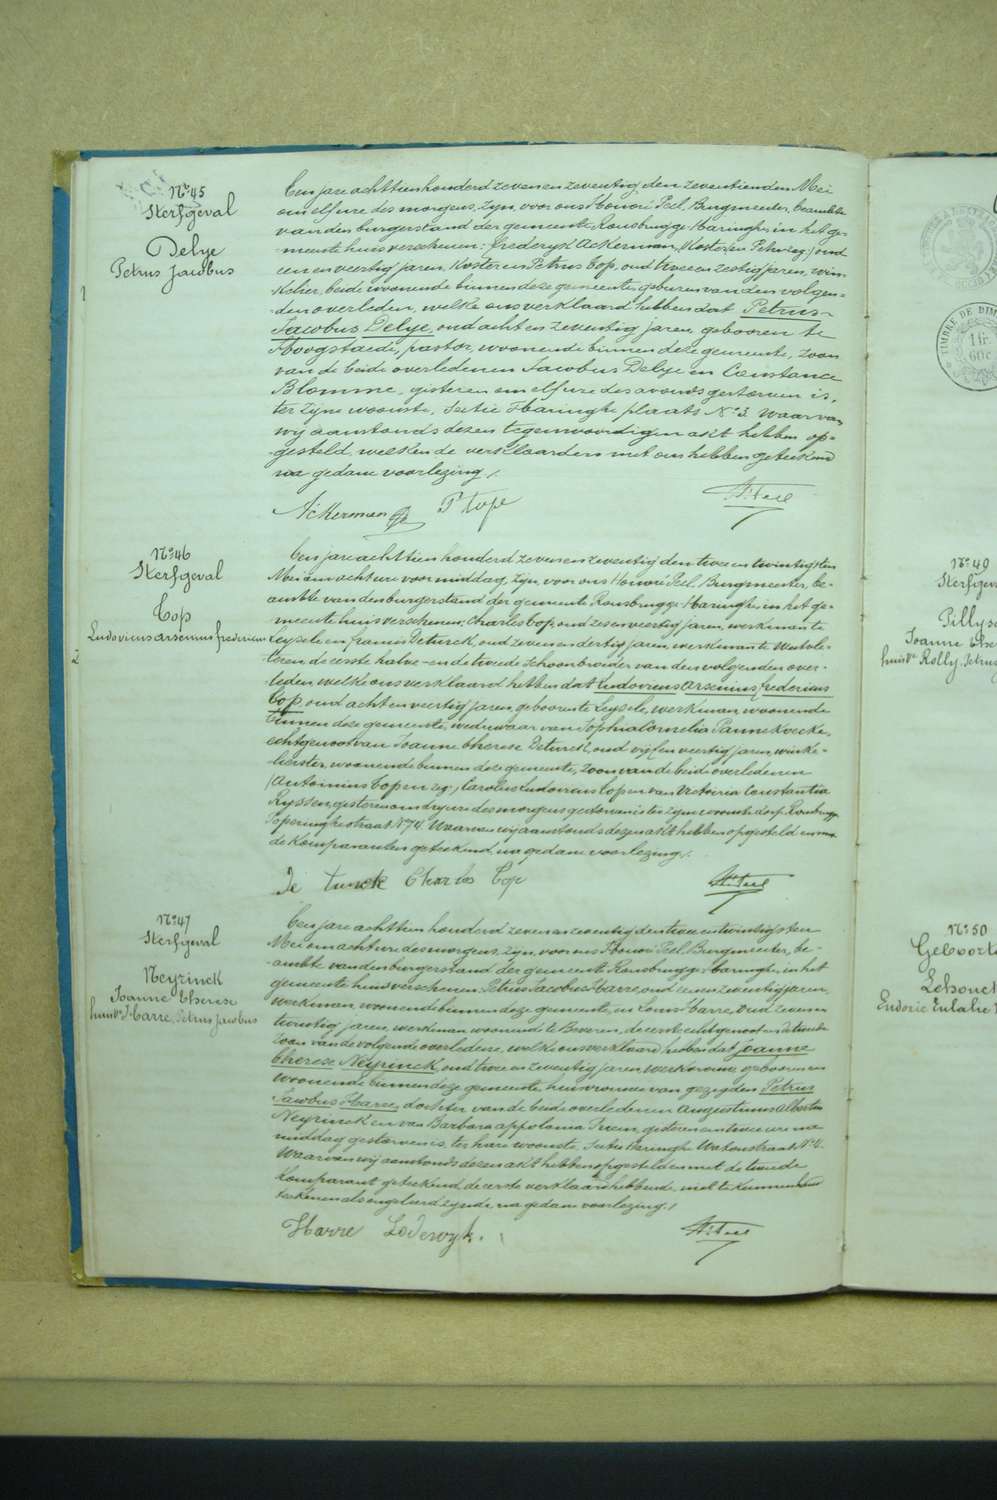 Nr 45
Sterfgeval
Delye
Petrus Jacobus
1
Een jare achttien honderd zeven en zeventig, den zeventienden Mei
om elf ure des morgens, zijn, voor ons Honoré Peel, Burgmeester, beambte
van den burgerstand der gemeente Rousbrugge-Haringhe, in het ge-
-meente huis verschenen: Frederyk Ackerman, Koster en Peter Top, oud
een en veertig jaren, Koster en Petrus Top, oud twee en zestig jaren, win-
kelier, beide woonende binnen deze gemeente, geburen van den volgen-
-den overleden, welke ons verklaard hebben dat Petrus-
Jacobus Delye, oud acht en zeventig jaren, geboren te
Hoogstaede, pastor, woonende binnen deze gemeente, zoon
van de beide overledenen Jacobus Delye en Constance
Blomme, gisteren om elf ure des avonds gestorven is,
ter zyne woonste, Sectie Haringhe plaats No 3. Waarvan
wij aanstonds dezen tegenwoordigen akt hebben op-
gesteld, welken de verklaarders met ons hebben geteekend
na gedane voorlezing /.
Ackerman P Top Hré Peel
No 46
Sterfgeval
Top
Ludovicus Arsenius Fredericus
2
Een jare achttien honderd zeven en zeventig den twee en twintigsten
Mei om acht ure voormiddag, zijn, voor ons Honoré Peel, Burgmeester, be-
ambte van den burgerstand der gemeente Rousbrugge-Haringhe, in het ge-
meente huis verschenen, Charles Top, oud zes en veertig jaren, werkman te
Leysele en Francis Deturck, oud zeven en dertig jaren, werkman te Watole-
teren de eerste halve- en de tweede schoonbroeder van den volgenden over-
leden, welke ons verklaard hebben dat Ludovicus Arsenius Fredericus
Top, oud acht en veertig jaren, geboren te Leysele, werkman, woonende
binnen deze gemeente, weduwaar van Sophia Cornelia Pannekoecke,
echtgenoot van Joanne Therese Deturck, oud vijf en veertig jaren, winke-
lierster, woonende binnen deze gemeente, zoon van de beide overledenen
Carolus Ludovicus Top en van Victoiria Constantia
Ryssen, gisteren om dry ure des morgens gestorven is ter zyne woonste dorp Rousbrugge
Poperinghestraat No 74. Waarvan wij aanstonds dezen akt hebben opgesteld en met
de Komparanten geteekend, na gedane voorlezing /.
De Turck Charles Top Hré Peel
No 47
Sterfgeval
Neyrinck
Joanne Therese
huisve Harre, Petrus Jacobus
Een jare achttien honderd zeven en zeventig den twee en twintigsten
Mei om acht ure des morgens, zijn, voor ons Honoré Peel, Burgmeester, be-
-ambte van den burgerstand der gemeente Rousbrugge-Haringhe, in het
gemeente huis verschenen: Petrus Jacobus Harre, oud een en zeventig jaren,
werkman, woonende binnen deze gemeente, en Louis Harre, oud zeven en
twintig jaren, werkman woonende te Beveren, de eerste echtgenoot en de tweede
zoon van de volgende overledene, welke ons verklaard hebben dat Joanne
Therese Neyrinck, oud twee en zeventig jaren, werkvrouw, geboren en
woonende binnen deze gemeente, huisvrouwe van gezegden Petrus
Jacobus Harre, dochter van de beide overledenen Augustinus Albertus
Neyrinck en van Barbara Appolonia Proven, gisteren om twee ure na
middag gestorven is, ter hare woonste, Sectie Haringhe Watoustraat No 4.
Waarvan wij aanstonds dezen akt hebben opgesteld en met de tweede
Komparant geteekend, de eerste verklaard hebbende, niet te kunnen
teekenen als ongeleerd zijnde, na gedane voorlezing /.
Harre Lodewyk. Hré Peel
TIMBRE DE DIM
1 fr.
60 c
No 49
Sterfgev
Pillys
Joanne The
huisve Rolly, Petrus
No 50
Geboorte
Lehouck
Eudoxie Eulalie